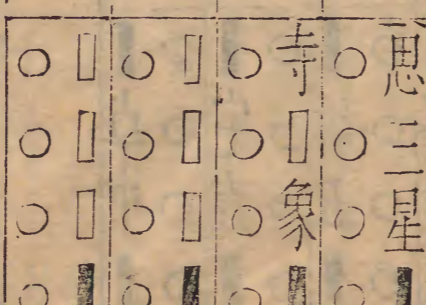 思三星■
○○○○
寺□象■
○○○○
□□□■
○○○○
□□□■
○○○○